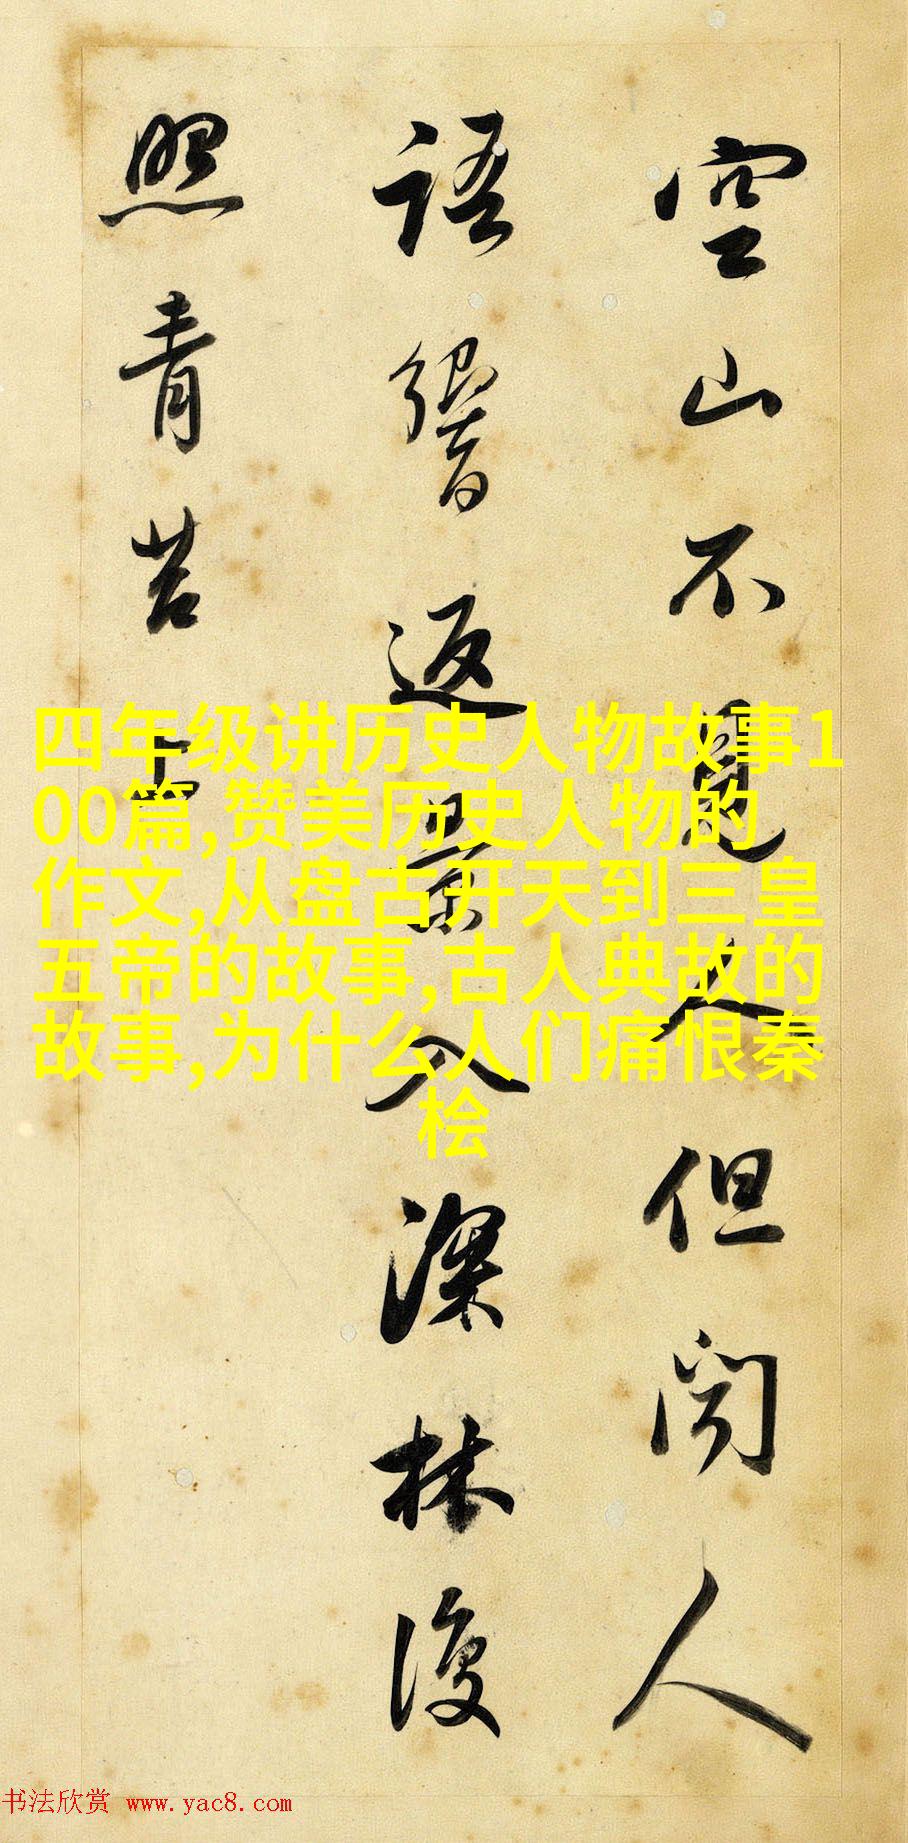 空山不見人但聞人
語響返景入深林復
照青苔上
四年级讲历史人物故事1
00篇,赞美历史人物的
作文,从盘古开天到三皇
五帝的故事,古人典故的
故事,为什么人们痛恨秦
桧
书法欣赏 www.yac8.com